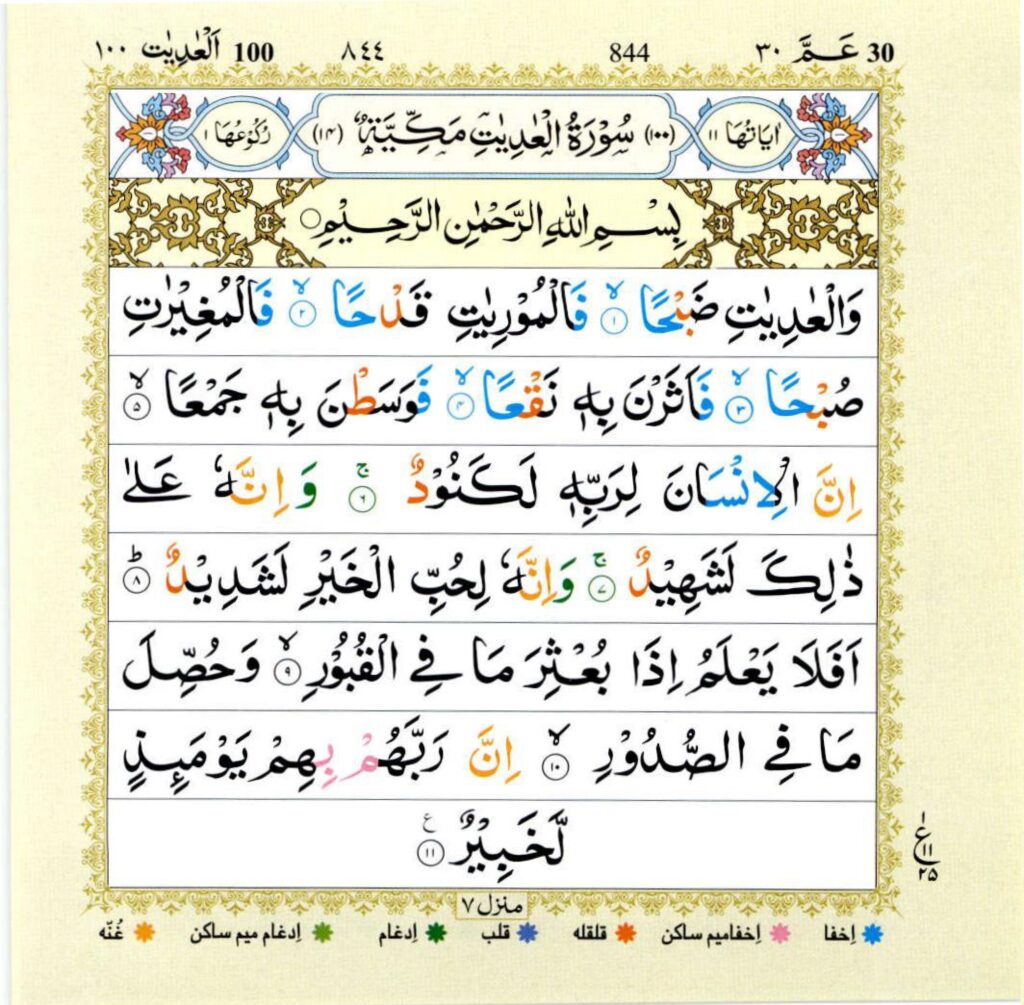 30 عَـمَّ ٣٠ 844 ٨٤٤ 100 اَلْعٰدِيٰت ١٠٠
اٰيَاتُهَا ١١ (١٠٠) سُوْرَةُ الْعٰدِيٰتِ مَكِّيَّةٌ (١٤) رُكُوْعُهَا ١
بِسْمِ اللهِ الرَّحْمٰنِ الرَّحِيْمِ
وَالْعٰدِيٰتِ ضَبْحًا ۙ١ فَالْمُوْرِيٰتِ قَدْحًا ۙ٢ فَالْمُغِيْرٰتِ
صُبْحًا ۙ٣ فَاَثَرْنَ بِهٖ نَقْعًا ۙ٤ فَوَسَطْنَ بِهٖ جَمْعًا ۙ٥
اِنَّ الْاِنْسَانَ لِرَبِّهٖ لَكَنُوْدٌ ۚ٦ وَاِنَّهٗ عَلٰى
ذٰلِكَ لَشَهِيْدٌ ۚ٧ وَاِنَّهٗ لِحُبِّ الْخَيْرِ لَشَدِيْدٌ ؕ٨
اَفَلَا يَعْلَمُ اِذَا بُعْثِرَ مَا فِى الْقُبُوْرِ ۙ٩ وَحُصِّلَ
مَا فِى الصُّدُوْرِ ۙ١٠ اِنَّ رَبَّهُمْ بِهِمْ يَوْمَئِذٍ
لَّخَبِيْرٌ ١١ ع
١ ع ١١ ٢٥
منزل ٧
اِخفا اِخفامیم ساکن قلقله قلب اِدغام اِدغام میم ساکن غُنّه